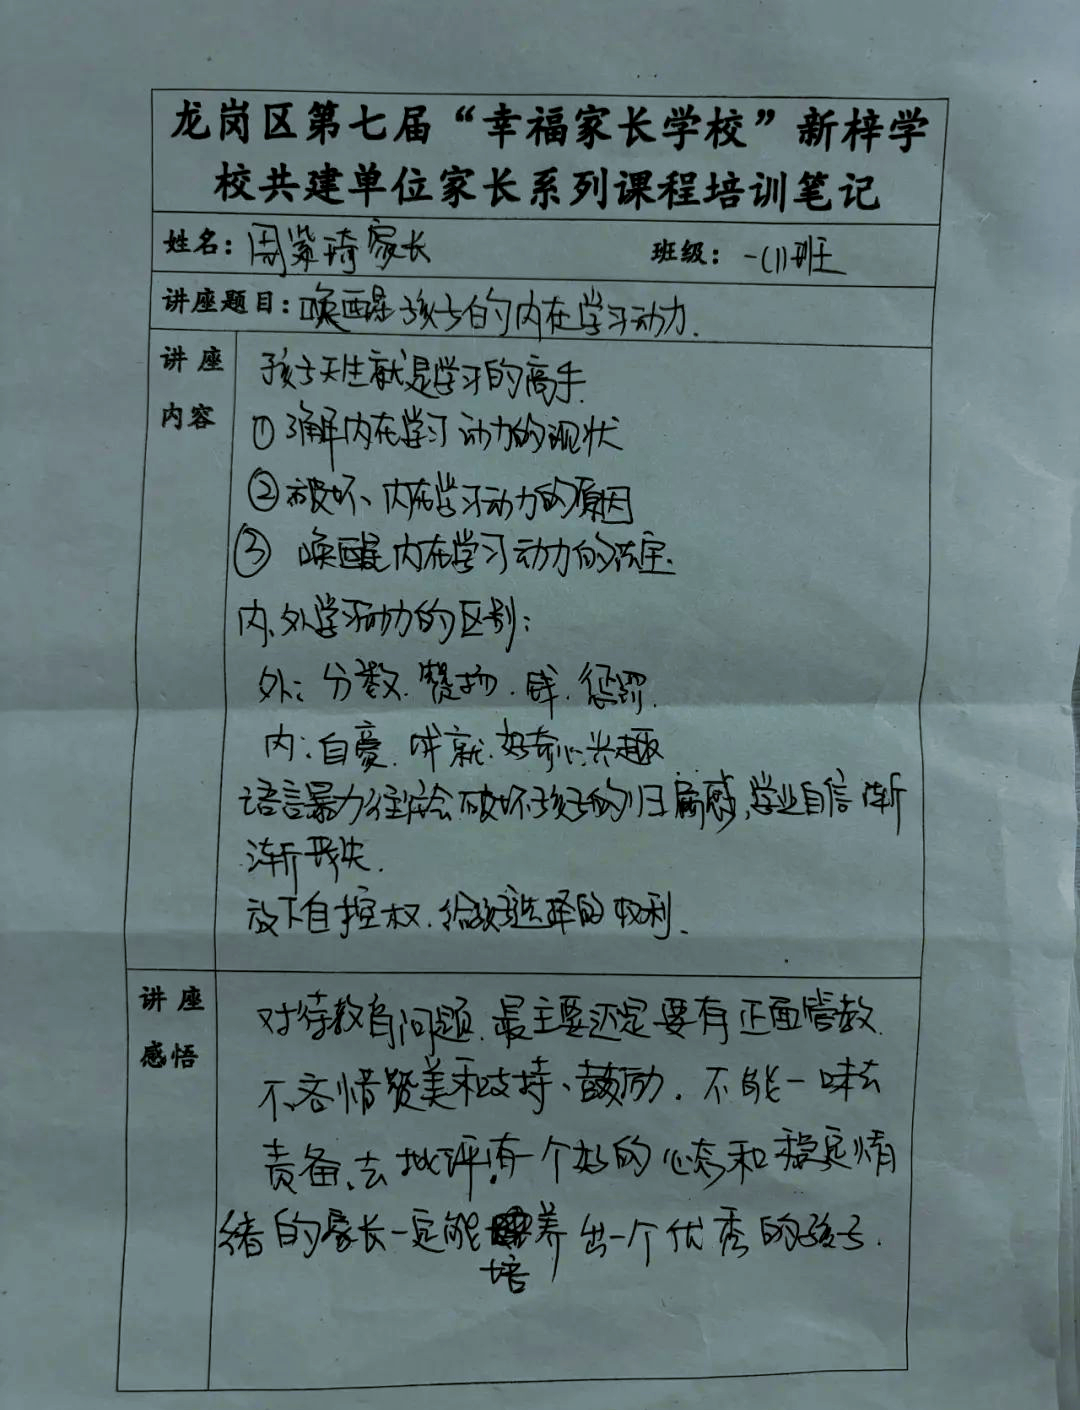 龙岗区第七届“幸福家长学校”新梓学
校共建单位家长系列课程培训笔记
姓名：周紫琦家长 班级：一(1)班
讲座题目：唤醒孩子的内在学习动力.
讲座
内容
孩子天生就是学习的高手.
①了解内在学习动力的现状
②破坏、内在学习动力的原因
③ 唤醒内在学习动力的法宝.
内、外学习动力的区别：
外：分数.赞扬.钱.惩罚.
内：自豪.成就.好奇心.兴趣
语言暴力往往会破坏孩子的归属感,学业自信渐
渐丧失.
放下自控权.给孩子选择的权利.
讲座
感悟
对待教育问题.最主要还是要有正面管教.
不吝惜赞美和支持、鼓励.不能一味去
责备、去批评.有一个好的心态和稳定情
绪的家长一定能培养出一个优秀的孩子.